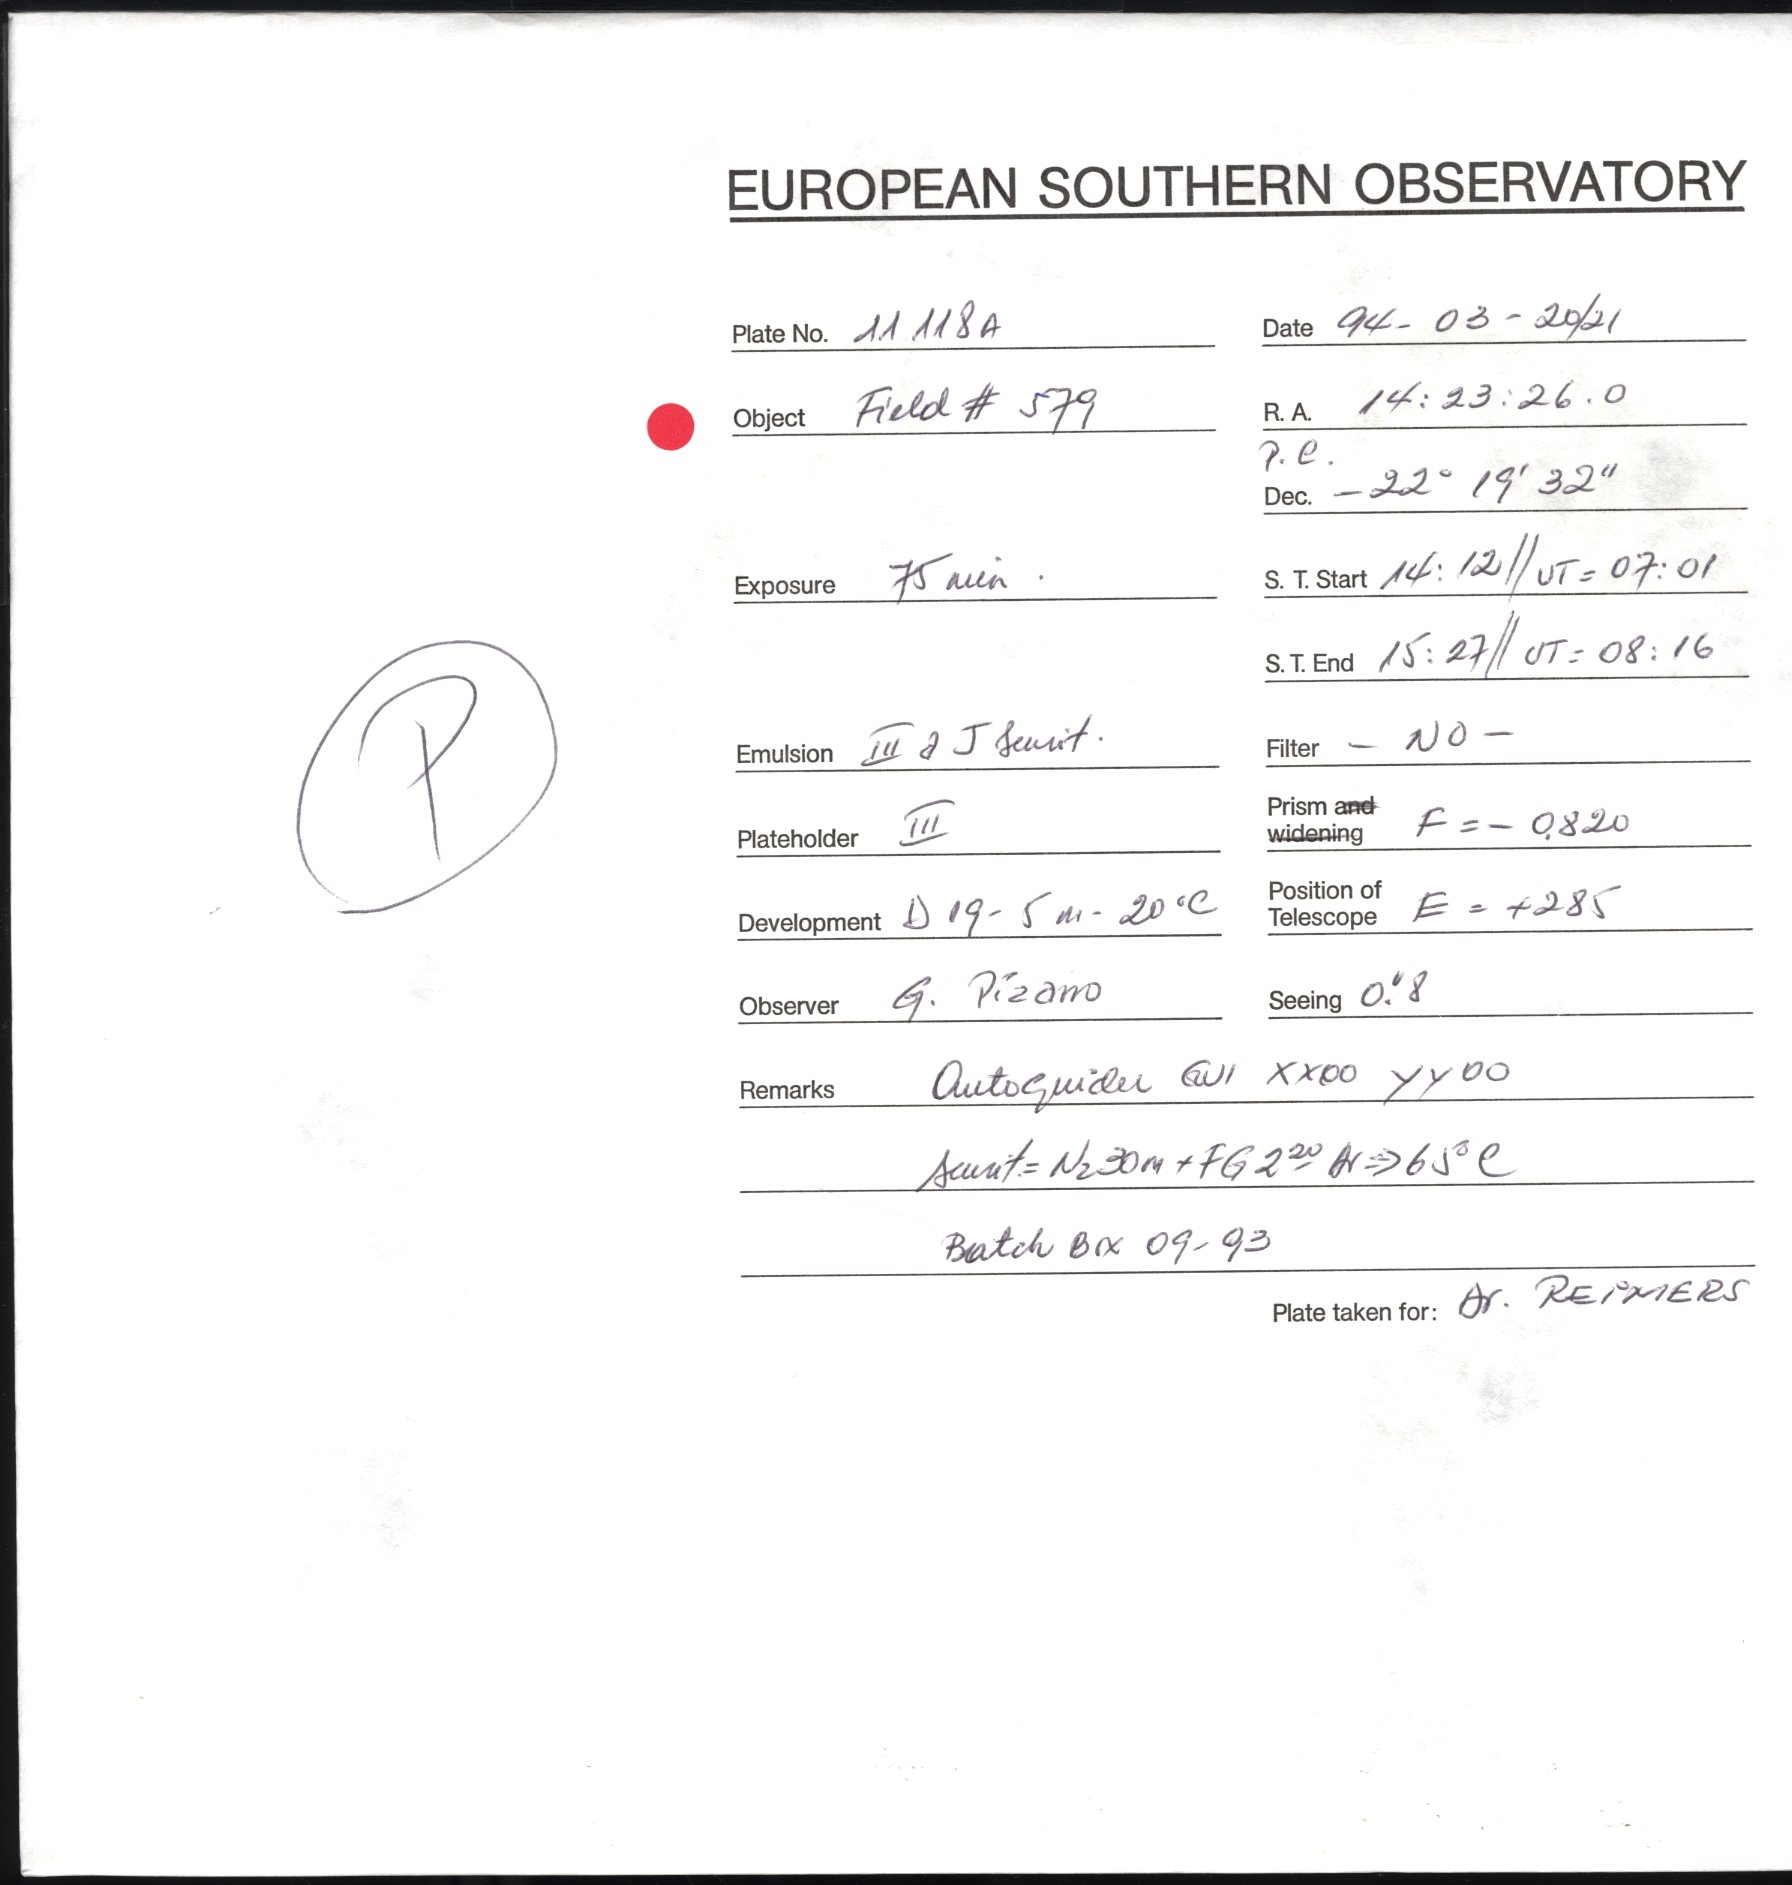 EUROPEAN SOUTHERN OBSERVATORY
Plate No. 11118A
Date 94-03-20/21
Object Field # 579
R. A. 14:23:26.0
P. C.
Dec. -22° 19' 32"
Exposure 75 min.
S. T. Start 14:12//UT=07:01
S. T. End 15:27//UT=08:16
P
Emulsion III a J Sensit.
Filter - NO -
Plateholder III
Prism and widening F=-0.820
Development D19-5m-20°C
Position of Telescope E=+285
Observer G. Pizarro
Seeing 0."8
Remarks Autoguider GU1 XX00 YY00
Sensit=N2 30m+FG 2 20 => 65°C
Batch Box 09-93
Plate taken for: Dr. REIMERS